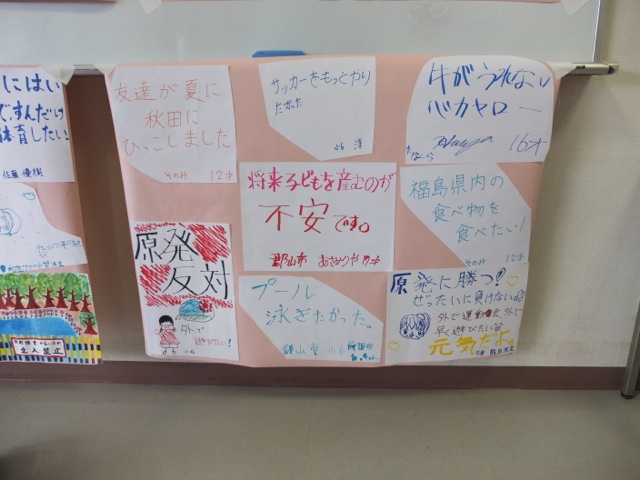 にはい
ですんだけ
体育したい
佐藤優樹
立入禁止
友達が夏に
秋田に
ひっこしました
そのみ 12才
サッカーをもっとやり
たかった
小6 淳
牛がうれない
バカヤロー
16才
将来子どもを産むのが
不安です。
郡山市 あさみ
福島県内の
食べ物を
食べたい!
そのみ 12才
原発
反対
外で
遊びたい!
小6
プール
泳ぎたかった。
郡山 小6
原発に勝つ!
ぜったいに負けない
外で運動 外で
早く遊びたい
元気だよ。